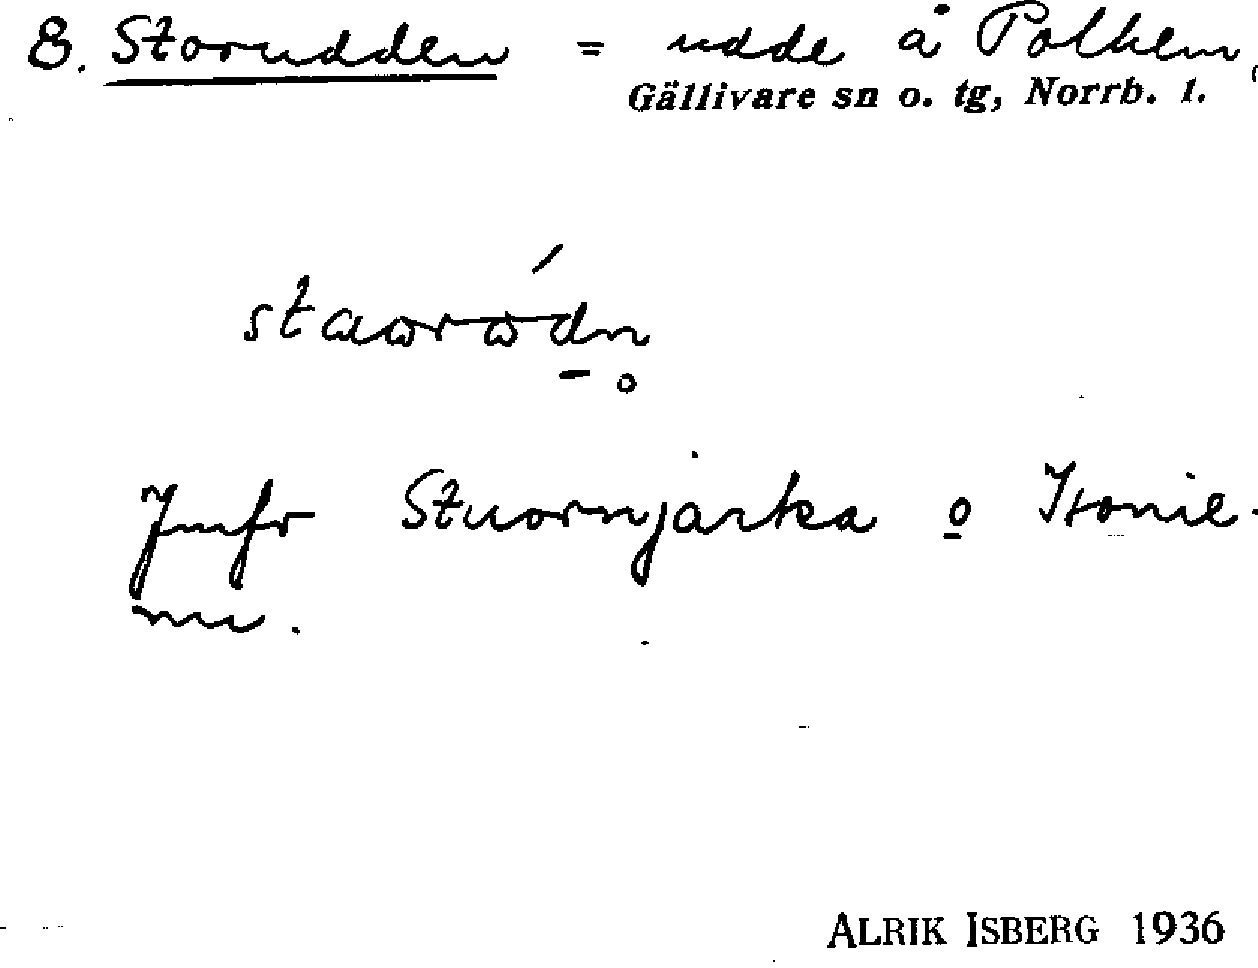 8. Storudden = udde å Polken,
Gällivare sn o. tg, Norrb. l.
Jmfr Stuornjarka o Isonie-
mi.
ALRIK ISBERG 1936